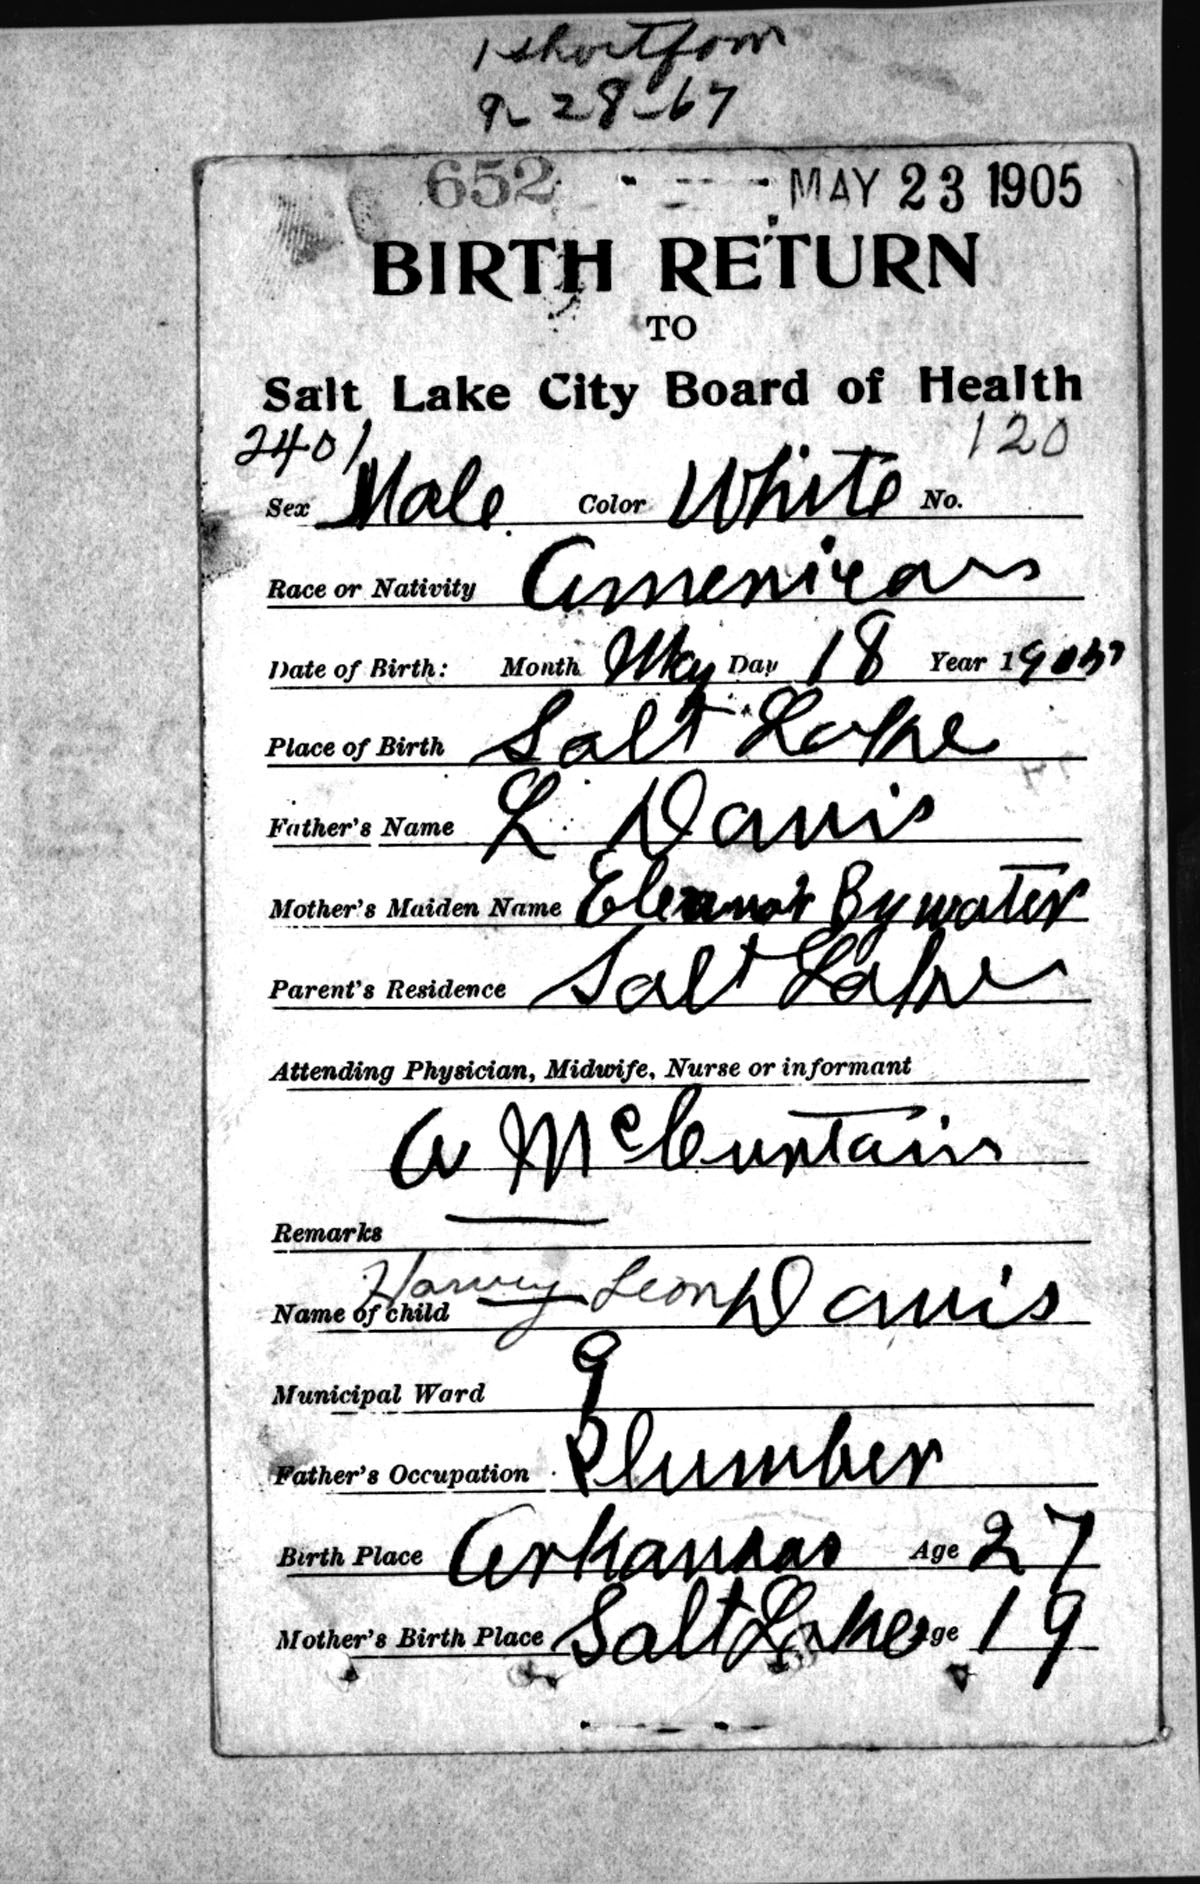 1 shortform
9-28-67
652 MAY 23 1905
BIRTH RETURN
TO
Salt Lake City Board of Health
2401 120
Sex Male Color White No.
Race or Nativity American
Date of Birth: Month May Day 18 Year 1905
Place of Birth Salt Lake
Father's Name L Davis
Mother's Maiden Name Eleanor Bywater
Parent's Residence Salt Lake
Attending Physician, Midwife, Nurse or informant
A McCuntain
Remarks
Name of child Harvey Leon Davis
Municipal Ward 9
Father's Occupation Plumber
Birth Place Arkansas Age 27
Mother's Birth Place Salt Lake Age 19